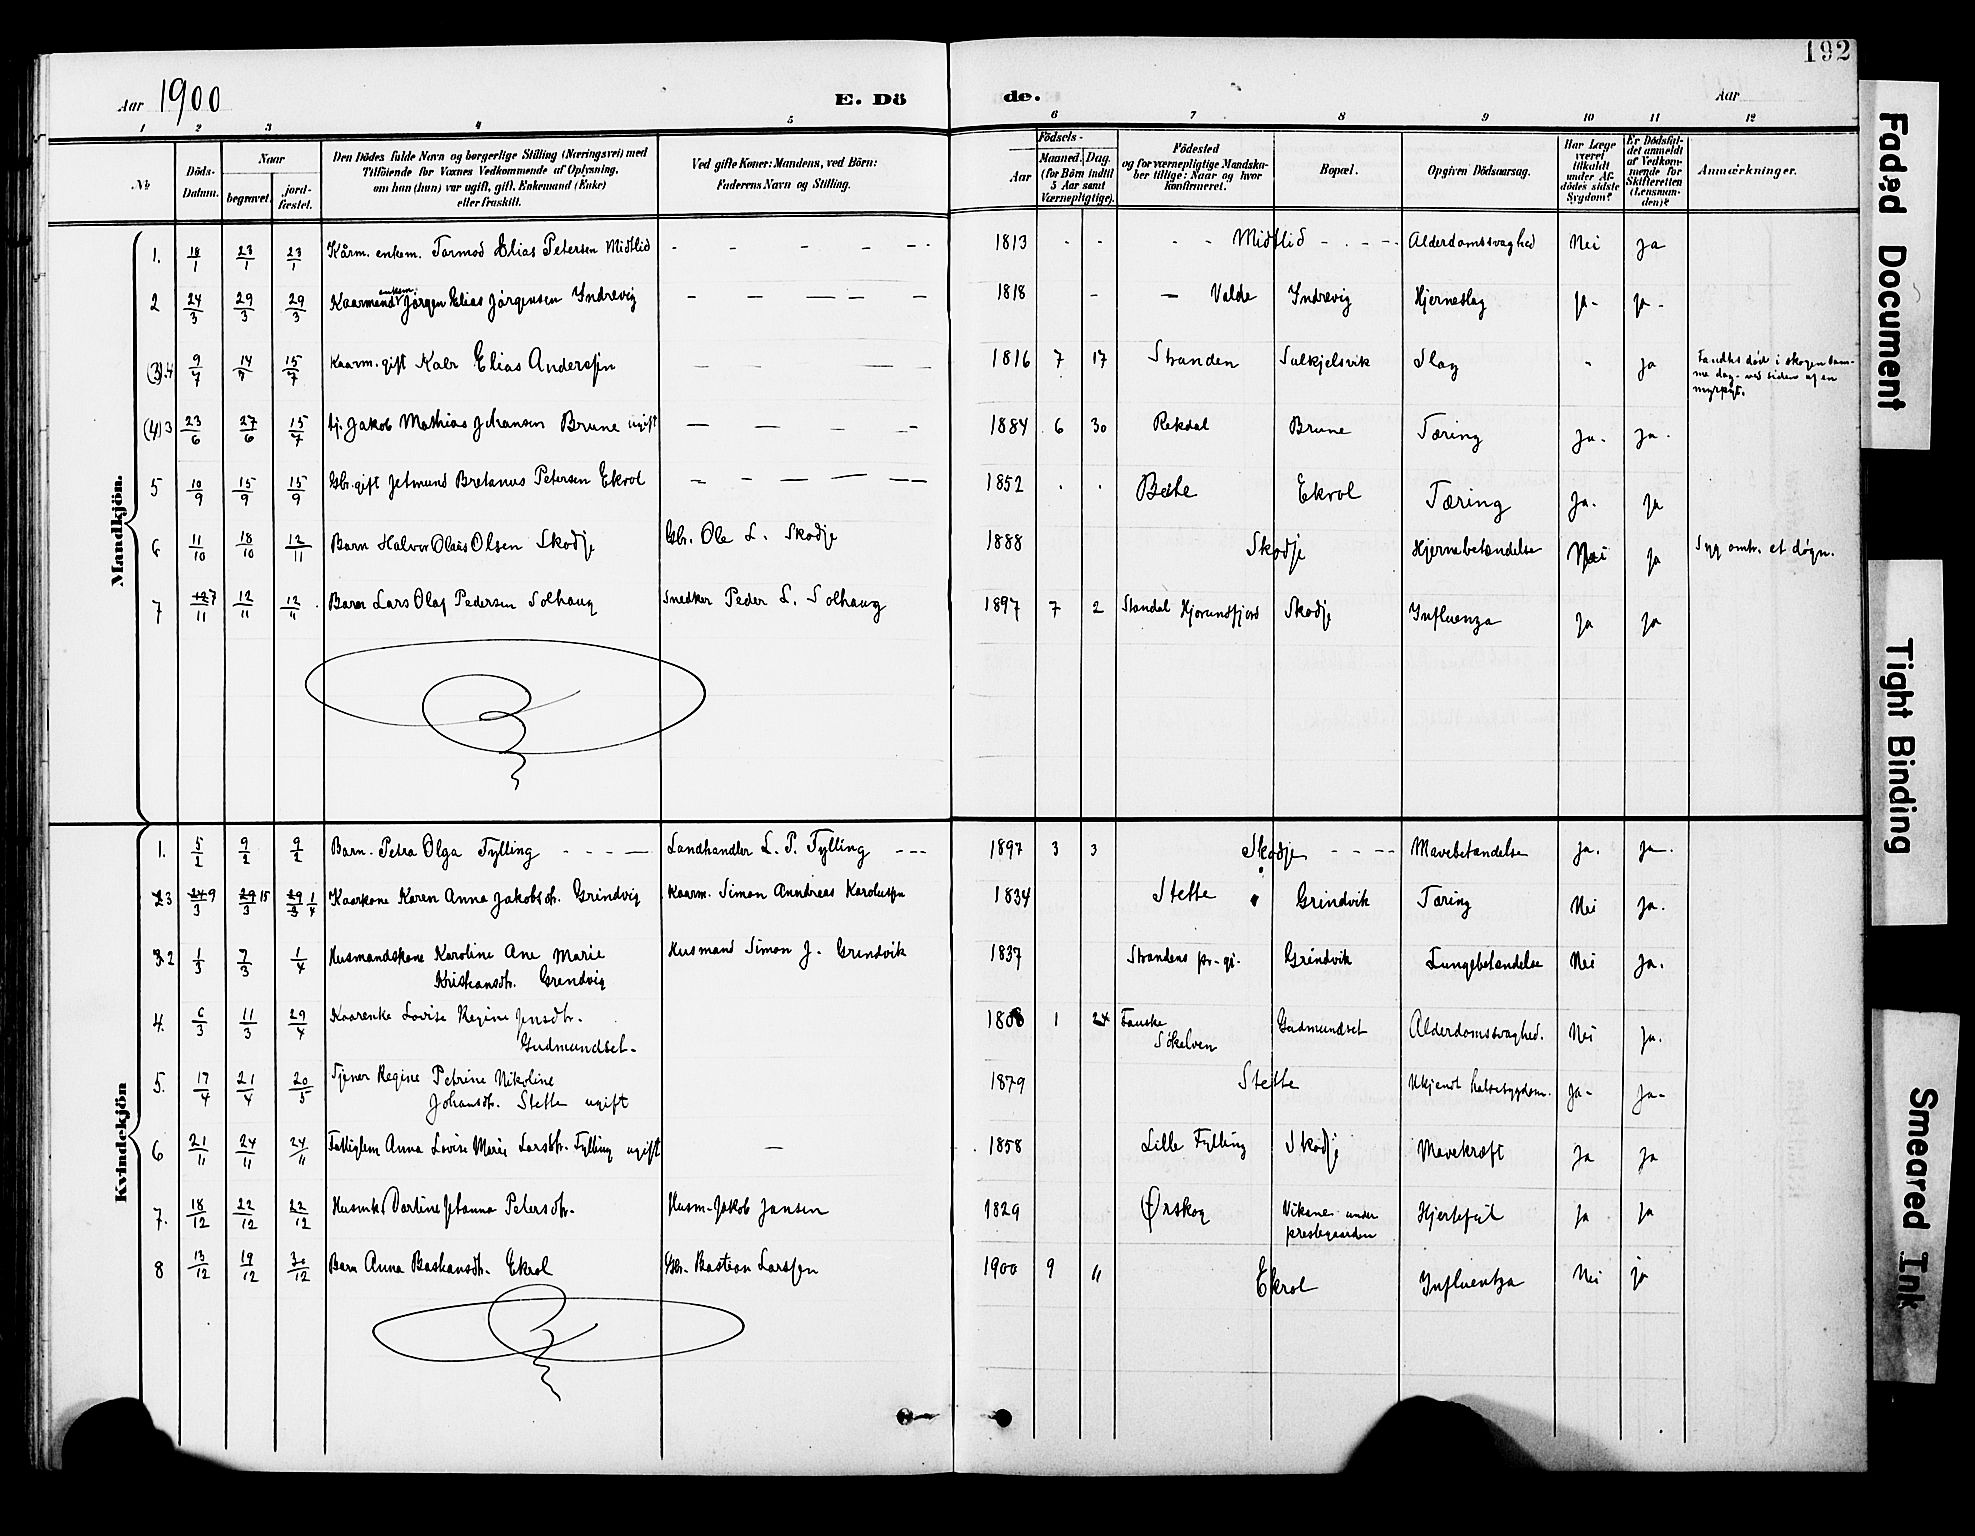 192
Aar 1900 E. Dö de. Aar
1 2 3 4 5 6 7 8 9 10 11 12
№ Döds-Datum. Naar begravet. jord-fæstet. Den Dödes fulde Navn og borgerlige Stilling (Næringsvei) med Tilföiende for Voxnes Vedkommende af Oplysning, om han (hun) var ugift, gift, Enkemand (Enke) eller fraskilt. Ved gifte Koner: Mandens, ved Börn: Faderens Navn og Stilling. Födsels- Aar Maaned. Dag. (for Börn indtil 5 Aar samt Værnepligtige). Födested og for værnepligtige Mandskaber tillige: Naar og hvor konfirmeret. Bopæl. Opgiven Dödsaarsag. Har Læge været tilkaldt under Afdödes sidste Sygdom? Er Dödsfaldet anmeldt af Vedkommende for Skifteretten (Lensmanden)? Anmærkninger.
Mandkjön.
1. 18/1 23/1 23/1 Kårm. enkem. Tormod Elias Petersen Midtlid - - - - - 1813 - - - - Midtlid - - - - Alderdomssvaghed Nei ja
2 24/3 29/3 29/3 Kaarmand enkem. Jørgen Elias Jørgensen Indrevig - - - - - 1818 - - Valde Indrevig Hjerneslag ja- ja-
(3).4 9/7 14/7 15/7 Kaarm. gift Kolr Elias Anderssen - - - - 1816 7 17 Stranden Solkjelsvik Slag - ja Fandtes død i skogen samme dag - ved siden af en myrpyt.
(4)3 23/6 27/6 15/7 tj. Jakob Mathias Johansen Brune ugift - - - - 1884 6 30 Rekdal Brune Tæring ja. ja.
5 10/9 15/9 15/9 Gbr. gift Jetmund Bretanus Petersen Ekrol - - - - - 1852 . . Beite Ekrol Tæring ja. ja
6 11/10 18/10 12/11 Barn Halvor Olaus Olsen Skodje Gbr. Ole L. Skodje 1888 Skodje Hjernebetændelse Nei ja Syg omtr. et døgn.
7 7/11 12/11 12/11 Baren Lars Olaf Pedersen Solhaug Snedker Peder L. Solhaug 1897 7 2 Standal Hjørundfjord Skodje Influenza ja ja
Kvindekjön
1. 5/2 9/2 9/2 Barn. Petra Olga Tylling - - - - Landhandler L. P. Tylling - - - 1897 3 3 Skodje - - - - Mavebetændelse ja. ja.
3 9/3 15/3 1/4 Kaarkone Karen Anna Jakobsdtr. Grindvig Kaarm. Simon Anndreas Karolussen 1834 Stette Grindvik Tæring Nei ja.
2 1/3 7/3 1/4 Husmandskone Karoline Ane Marie
Kristiansdtr. Grendvig Husmand Simon J. Grendvik 1837 Strandens pr-gj. Grindvik Lungebetændelse Nei ja.
4. 6/3 11/3 29/4 Kaarenke Lovise Regine Jensdtr.
Gudmundset- 1808 1 24 Fauske Søkelven Gudmundset Alderdomssvaghed. Nei ja.
5. 17/4 21/4 20/5 Tjener Regine Petrine Nikoline
Johansdtr. Stette ugift 1879 Stette Ukjendt halssygdom. ja- ja-
6 21/11 24/11 24/11 Fattiglem Anna Lovise Marie Larsdtr. Tylling ugift - 1858 Lille Tylling Skodje Mavekræft ja ja
7. 18/12 22/12 22/12 Husmk. Dortine Johanna Petersdtr. Husm. Jakob Jansen 1829 Ørskog Viksnes under prestegaarden Hjertefeil ja ja
8 13/12 19/12 30/12 Barn Anna Bastiansdtr. Ekrol Gbr. Bastian Larssen 1900 9 " Ekrol Influentza Nei ja
Faded Document
Tight Binding
Smeared Ink